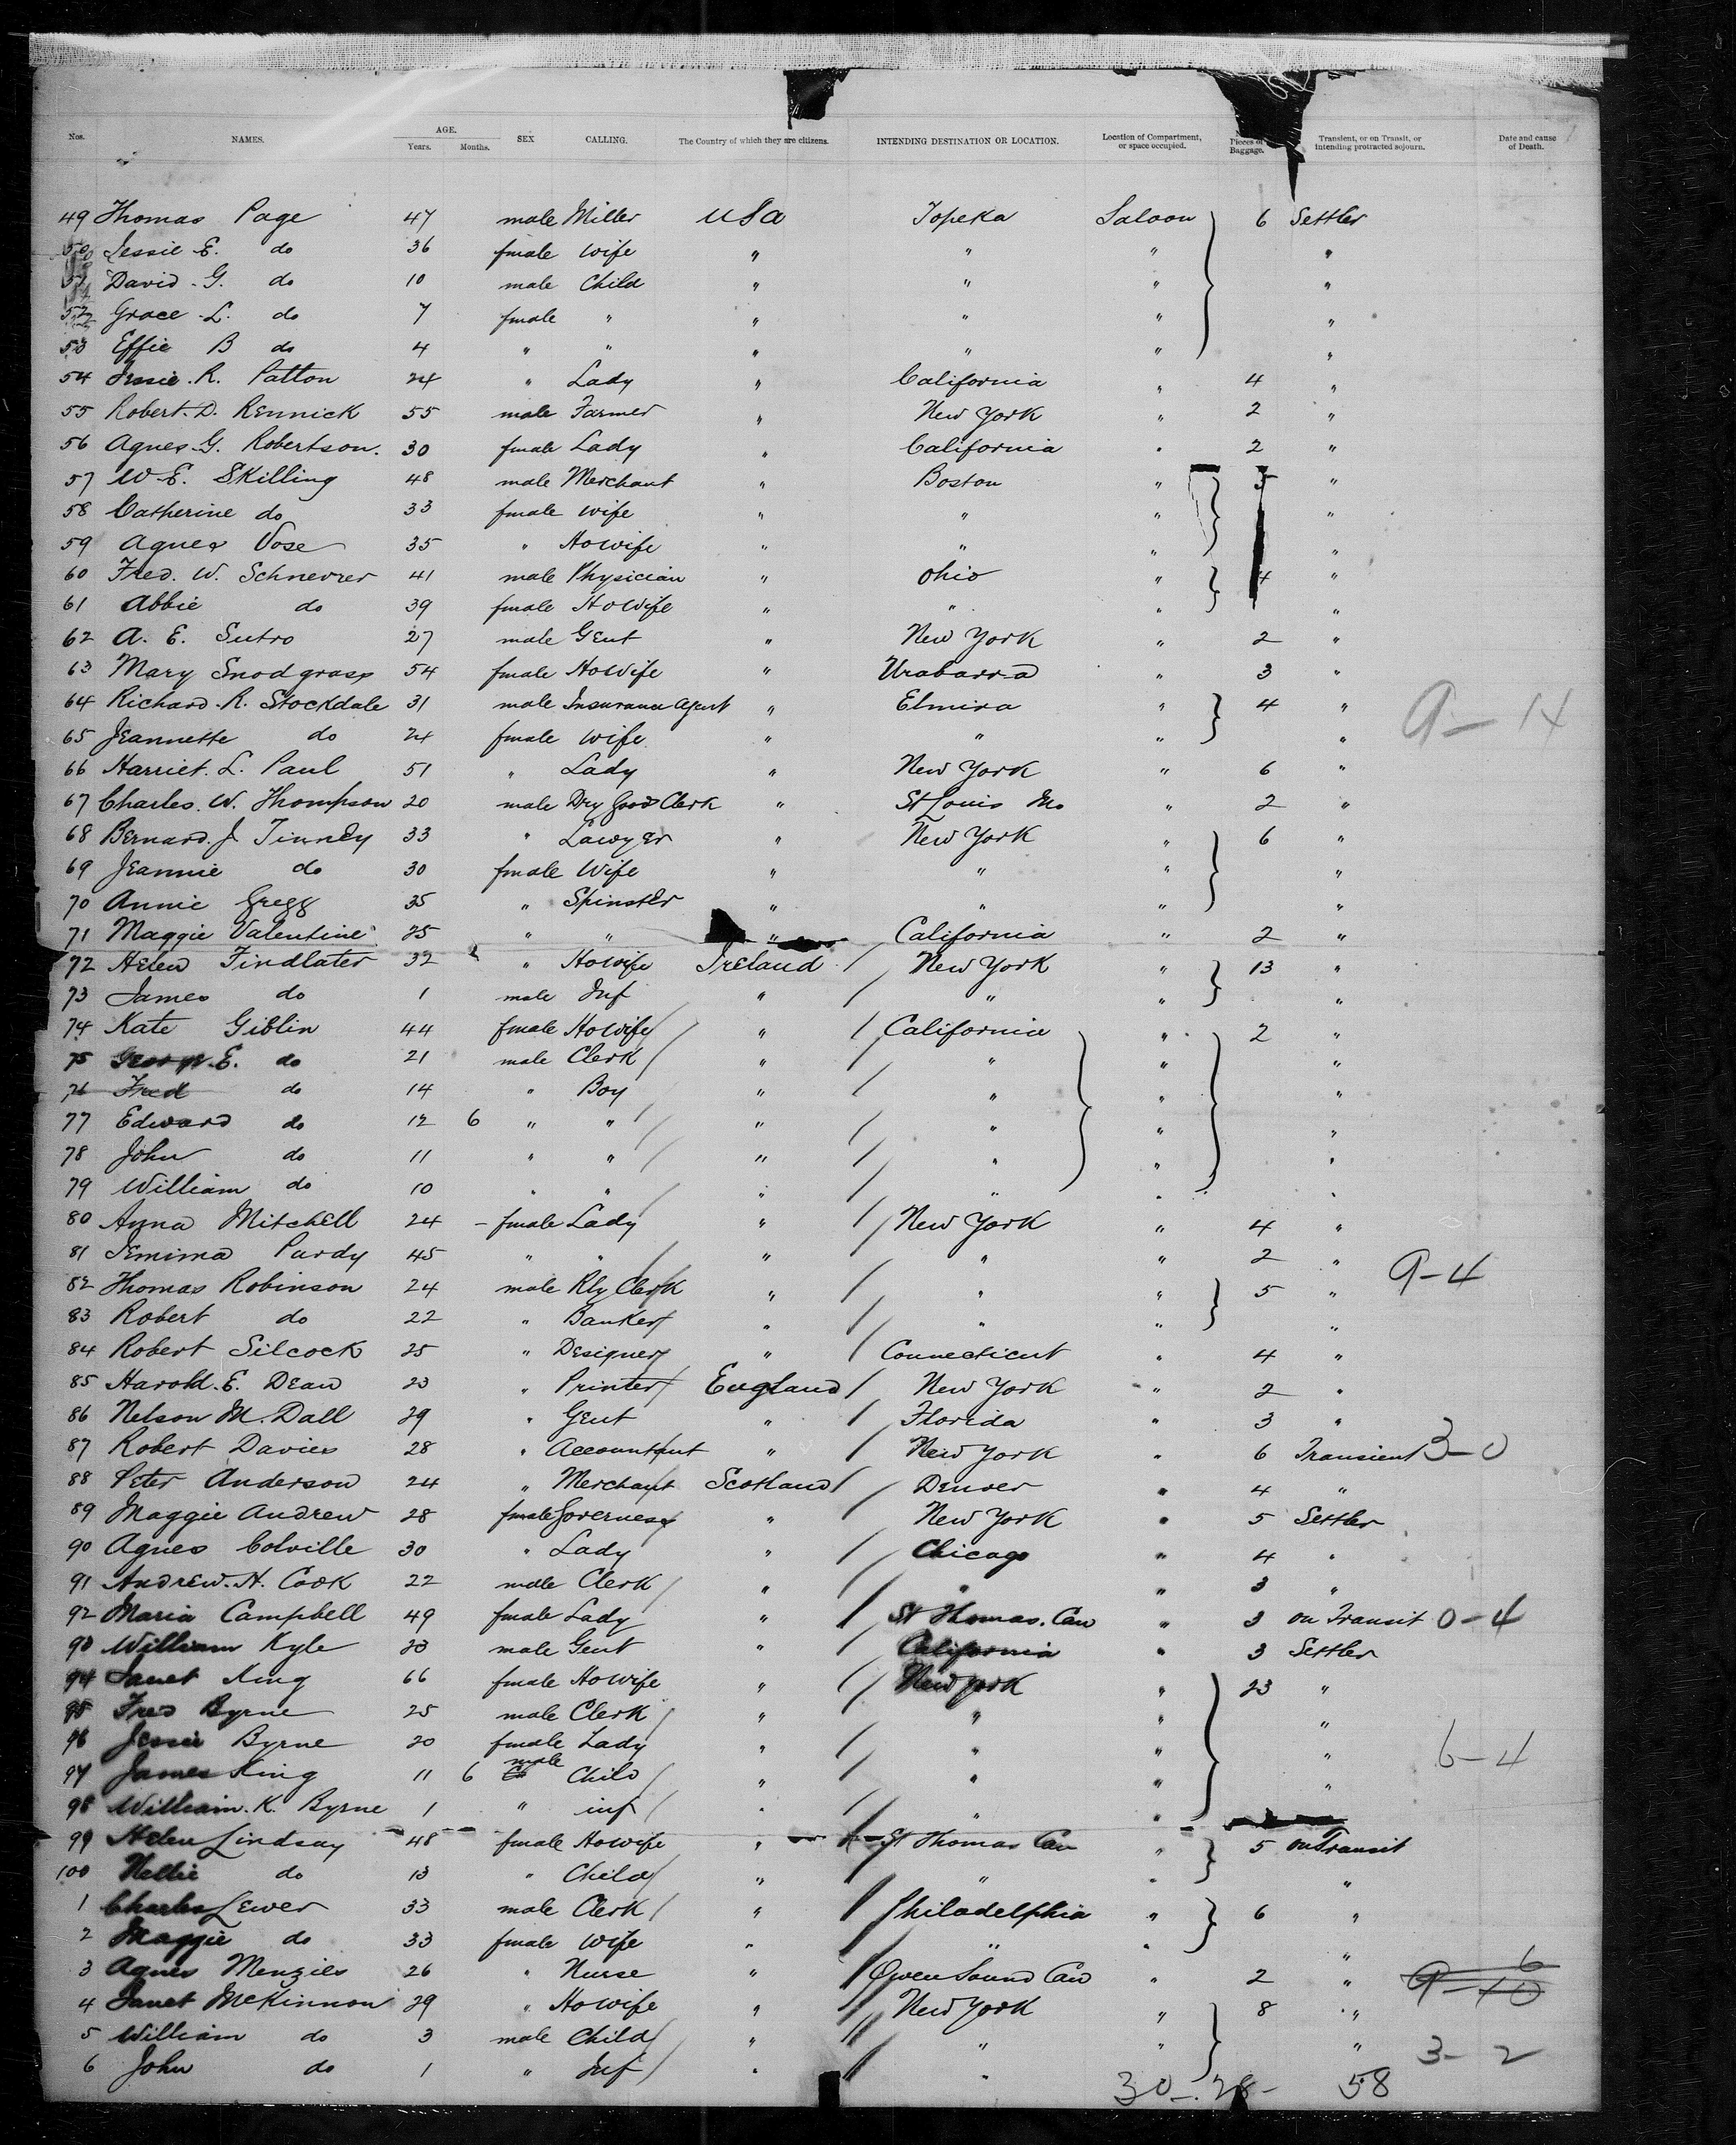 Nos. NAMES. AGE. Years. Months. SEX CALLING. The Country of which they are citizens. INTENDING DESTINATION OR LOCATION. Location of Compartment, or space occupied. Pieces of Baggage. Transient, or on Transit, or intending protracted sojourn. Date and cause of Death.
49 Thomas Page 47 male Miller USA Topeka Saloon 6 Settler
50 Jessie E. do 36 female Wife " " " "
51 David G. do 10 male Child " " " "
52 Grace L. do 7 female " " " " "
53 Effie B do 4 " " " " " "
54 Jessie R. Patton 24 " Lady " California " 4 "
55 Robert D. Rennick 55 male Farmer " New York " 2 "
56 Agnes G. Robertson. 30 female Lady " California " 2 "
57 W. E. Skilling 48 male Merchant " Boston " 5 "
58 Catherine do 33 female Wife " " " "
59 Agnes Vose 35 " HoWife " " " "
60 Fred. W. 41 male Physician " Ohio " 4 "
61 Abbie do 39 female HoWife " " " "
62 A. E. Sutro 27 male Gent " New York " 2 "
63 Mary Snodgrass 54 female HoWife " " 3 "
64 Richard R. Stockdale 31 male Insurance Agent " Elmira " 4 " 9-14
65 Jeannette do 24 female Wife " " " "
66 Harriet L. Paul 51 " Lady " New York " 6 "
67 Charles W. Thompson 20 male Dry Goods Clerk " St Louis Mo " 2 "
68 Bernard J. 33 " Lawyer " New York " 6 "
69 Jeannie do 30 female Wife " " " "
70 Annie Gregg 35 " Spinster " " " "
71 Maggie Valentine 25 " " " California " 2 "
72 Helen Findlater 32 " HoWife Ireland New York " 13 "
73 James do 1 male Inf " " " "
74 Kate Giblin 44 female HoWife " California " 2 "
75 E. do 21 male Clerk " " " "
76 Fred do 14 " Boy " " " "
77 Edward do 12 6 " " " " " "
78 John do 11 " " " " " "
79 William do 10 " " " " " "
80 Anna Mitchell 24 - female Lady " New York " 4 "
81 Jemima Purdy 45 " " " " " 2 "
82 Thomas Robinson 24 male Rly Clerk " " " 5 " 9-4
83 Robert do 22 " Banker " " " "
84 Robert Silcock 25 " Designer " Connecticut " 4 "
85 Harold E. Dean 23 " Printer England New York " 2 "
86 Nelson M. Dall 29 " Gent " Florida " 3 "
87 Robert Davies 28 " Accountant " New York " 6 Transient 3-0
88 Peter Anderson 24 " Merchant Scotland Denver " 4 "
89 Maggie Andrew 28 female Governess " New York " 5 Settler
90 Agnes Colville 30 " Lady " Chicago " 4 "
91 Andrew H. Cook 22 male Clerk " " " 3 "
92 Maria Campbell 49 female Lady " St Thomas. Can " 3 on Transit 0-4
93 William Kyle 23 male Gent " California " 3 Settler
94 Janet King 66 female HoWife " New York " 23 "
95 Fred Byrne 25 male Clerk " " " "
96 Jessie Byrne 20 female Lady " " " " 6-4
97 James King 11 6 male Child " " " "
98 William K. Byrne 1 " inf " " "
99 Helen Lindsay 48 female HoWife " St Thomas Can " 5 on Transit
100 Nellie do 13 " Child " " " "
1 Charles Lewer 33 male Clerk " Philadelphia " 6 "
2 Maggie do 33 female Wife " " " "
3 Agnes Menzies 26 " Nurse " Owen Sound Can " 2 " 9-10 6
4 Janet McKinnon 29 " HoWife " New York " 8 "
5 William do 3 male Child " " " " 3-2
6 John do 1 " Inf " "
30-28- 58